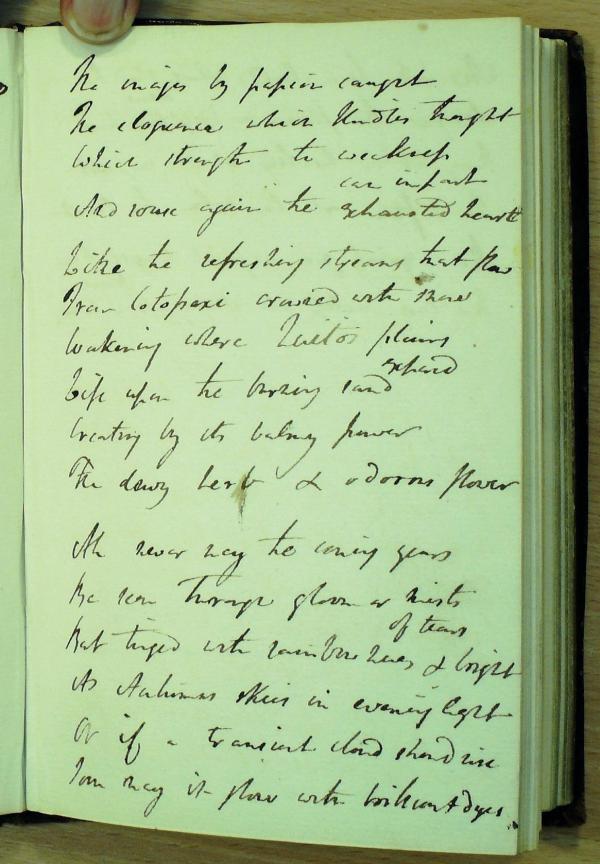 The images by passion caught
The eloquence which kindles thought
Which strength to weakness
can impart
And rouse again the exhausted heart
Like the refreshing streams that flow
From Cotopaxi crowned with snow
Wakening where Quito's plains
expand
Life upon the burning sand
Creating by its balmy power
The dewy herb & odorous flower
Ah never may the coming years
Be seen through gloom or mists
of tears
But tinged with rainbow hues & bright
As Autumns skies in evening light
Or if a transient cloud should rise
Soon may it glow with brilliant dyes